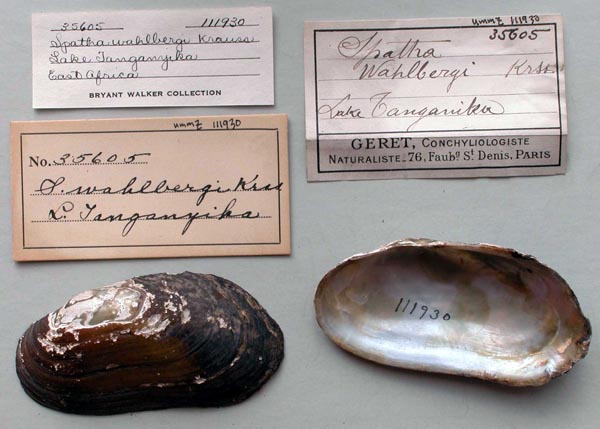 35605 111930
Spatha wahlbergi Krauss
Lake Tanganyika
East Africa
BRYANT WALKER COLLECTION
ummz 111930
35605
Spatha
Wahlbergi Krss.
Lake Tanganika
GERET, CONCHYLIOLOGISTE
NATURALISTE_76, Faubg St Denis, PARIS
ummz 111930
No. 35605
S. wahlbergi Krss
L. Tanganyika
111930